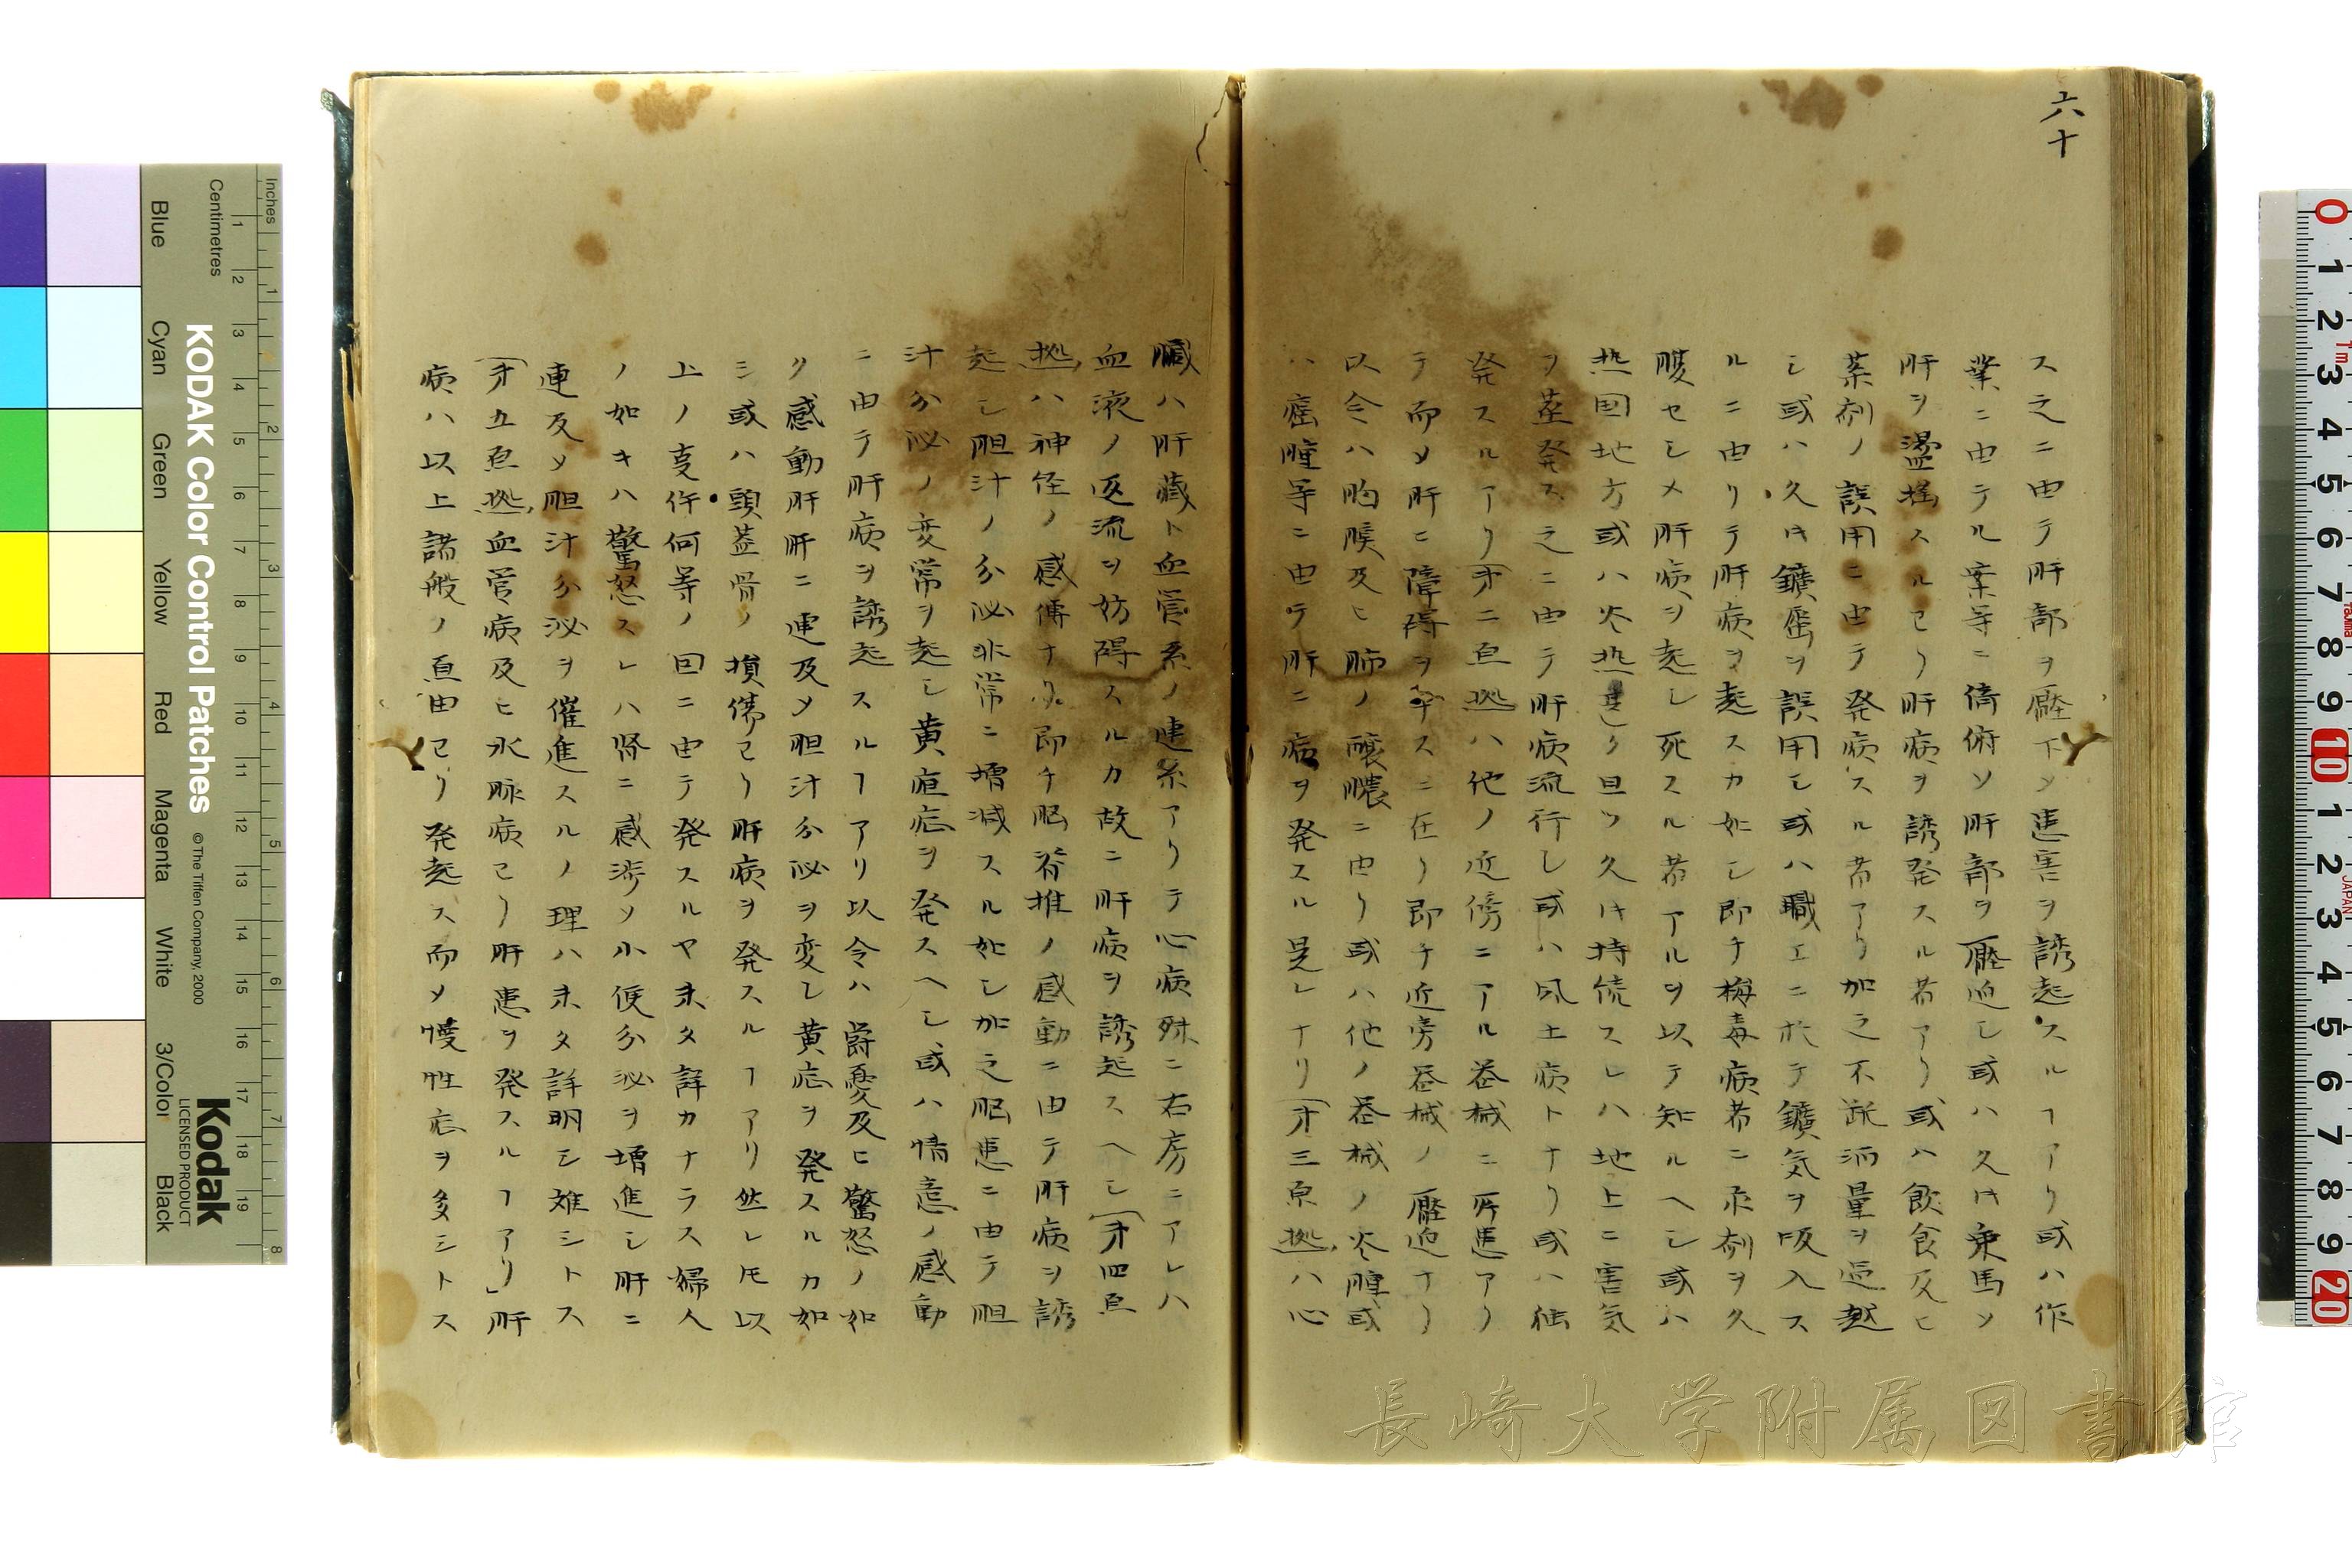 六十
ス之ニ由テ肝部ヲ壓下メ患害ヲ誘起スルヿアリ或ハ作
業ニ由テル業等ニ倚俯ソ肝部ヲ壓迫シ或ハ久ㇰ乗馬ソ
肝ヲ盪揺スルヨリ肝病ヲ誘発スル者アリ或ハ飲食及ヒ
薬剤ノ誤用ニ由テ発病スル者アリ加之不 酒量ヲ過越
シ或ハ久ㇰ鑛属ヲ誤用シ或ハ職エニ於テ鑛気ヲ吸入ス
ルニ由リテ肝病ヲ起スカ如シ即チ梅毒病者ニ汞剤ヲ久
服セシメ肝病ヲ起シ死スル者アルヲ以テ知ルヘシ或ハ
熱国地方或ハ炎熱 ク且ツ久ㇰ持続スレハ地上ニ害気
ヲ蒸発ス之ニ由テ肝病流行シ或ハ風土病トナリ或ハ独
発スルアリ(才二原拠ハ他ノ近傍ニアル器械ニ所患アリ
テ而メ肝ニ障碍ヲ スニ在リ即チ近旁器械ノ壓迫ナリ
以令ハ胸膜及ヒ肺ノ醸膿ニ由リ或ハ他ノ器械ノ炎腫或
ハ癌腫等ニ由テ肝ニ病ヲ発スル是レナリ(才三原拠ハ心
臓ハ肝蔵ト血管系ノ連系アリテ心病殊ニ右房ニアレハ
血液ノ返流ヲ妨碍スルカ故ニ肝病ヲ誘起スヘシ(才四原
拠ハ神径ノ感傳ナリ即チ脳脊推ノ感動ニ由テ肝病ヲ誘
起シ胆汁ノ分泌非常ニ増減スル如シ加之脳患ニ由テ胆
汁分泌ノ変常ヲ起シ黄疸症ヲ発スヘシ或ハ情意ノ感動
ニ由テ肝病ヲ誘起スルヿアリ以令ハ欝憂及ヒ驚怒ノ如
ク感動肝肝ニ連及メ胆汁分泌ヲ変シ黄症ヲ発スルカ如
シ或ハ頭蓋骨ノ損傷ヨリ肝病ヲ発スルヿアリ然レ𪜈以
上ノ支件何等ノ因ニ由テ発スルヤ未タ詳カナラス婦人
ノ如キハ驚怒スレハ腎ニ感渉ソ小便分泌ヲ増進シ肝ニ
連及メ胆汁分泌ヲ催進スルノ理ハ未タ詳明シ難シトス
(才五原拠血管病及ヒ水脉病ヨリ肝患ヲ発スルヿアリ」肝
病ハ以上諸般ノ原由ヨリ発起ス而メ慢性症ヲ多シトス
長崎大学附属図書館
KODAK Color Control Patches
© The Tiffen Company, 2000
Kodak
LICENSED PRODUCT
Inches
Centimetres
Blue
Cyan
Green
Yellow
Red
Magenta
White
3/Color
Black